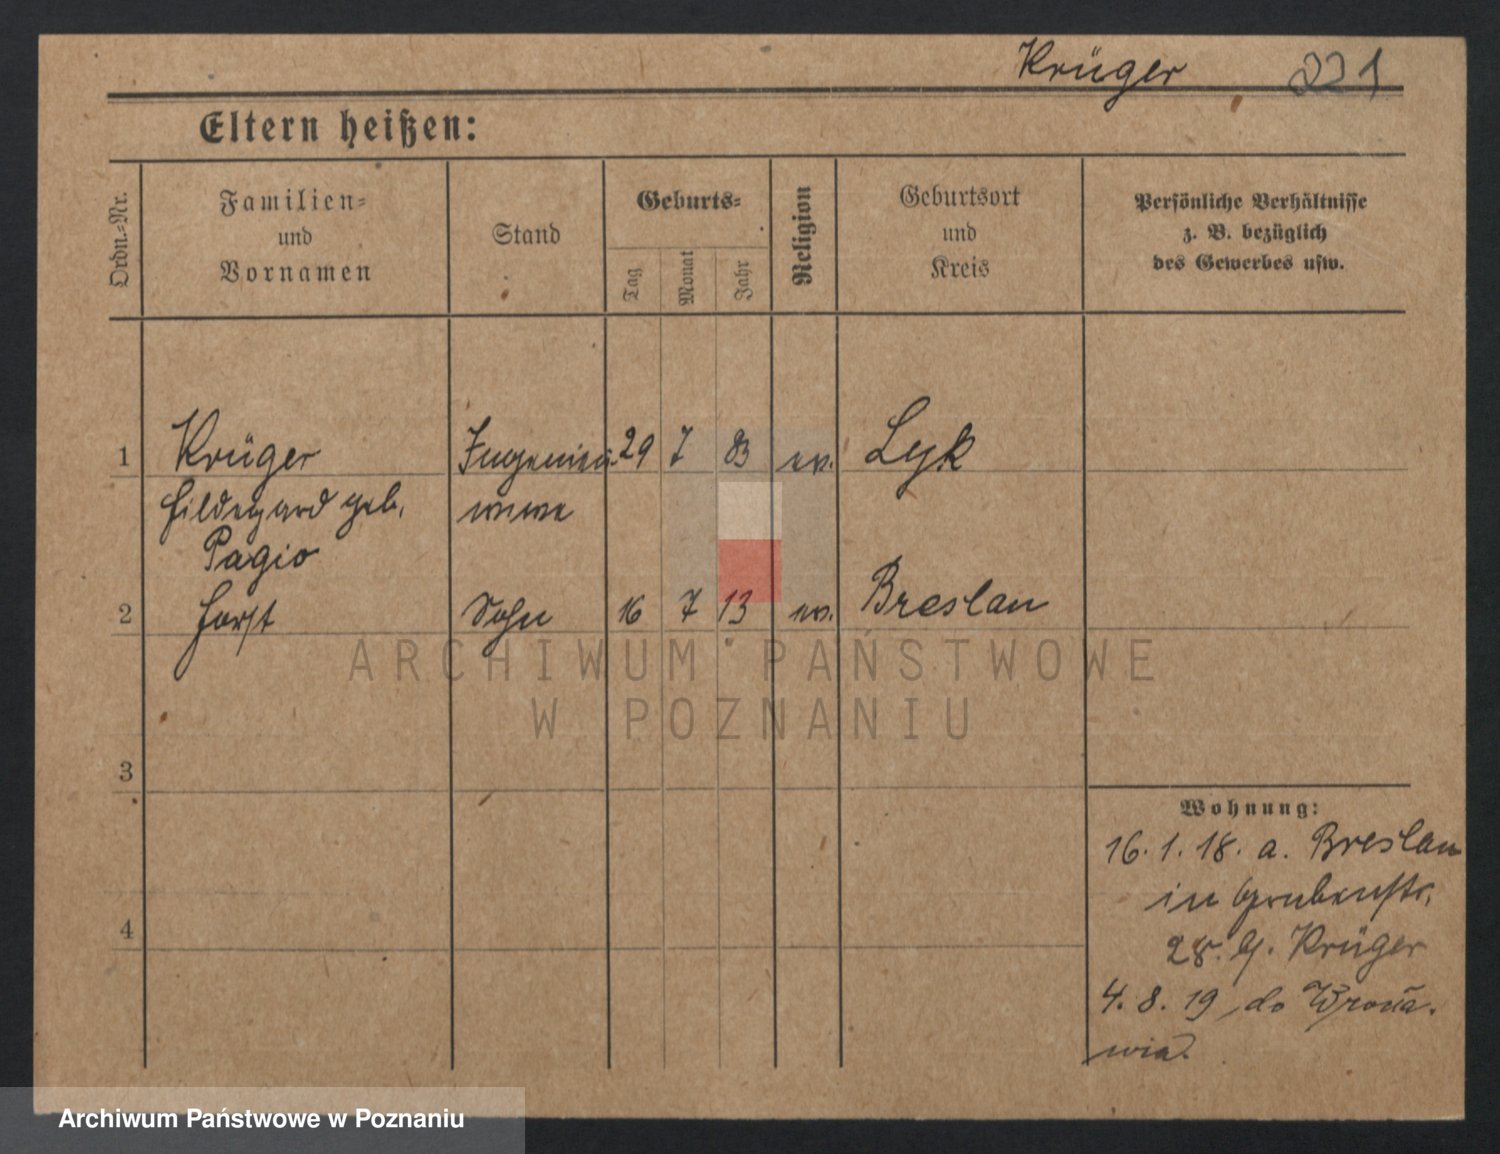 Krüger 221
Eltern heißen:
Ordn.=Nr.
Familien=
und
Vornamen
Stand
Geburts=
Tag
Monat
Jahr
Religion
Geburtsort
und
Kreis
Persönliche Verhältnisse
z. B. bezüglich
des Gewerbes usw.
1 Krüger 29 7 83 ev. Lyk
Hildegard geb.
Pagio
2 Horst Sohn 16 7 13 ev. Breslau
3
4
Wohnung:
16. 1. 18. a. Breslau
in Grubenstr.
28. G. Krüger
4. 8. 19 do
ARCHIWUM PAŃSTWOWE
W POZNANIU
Archiwum Państwowe w Poznaniu